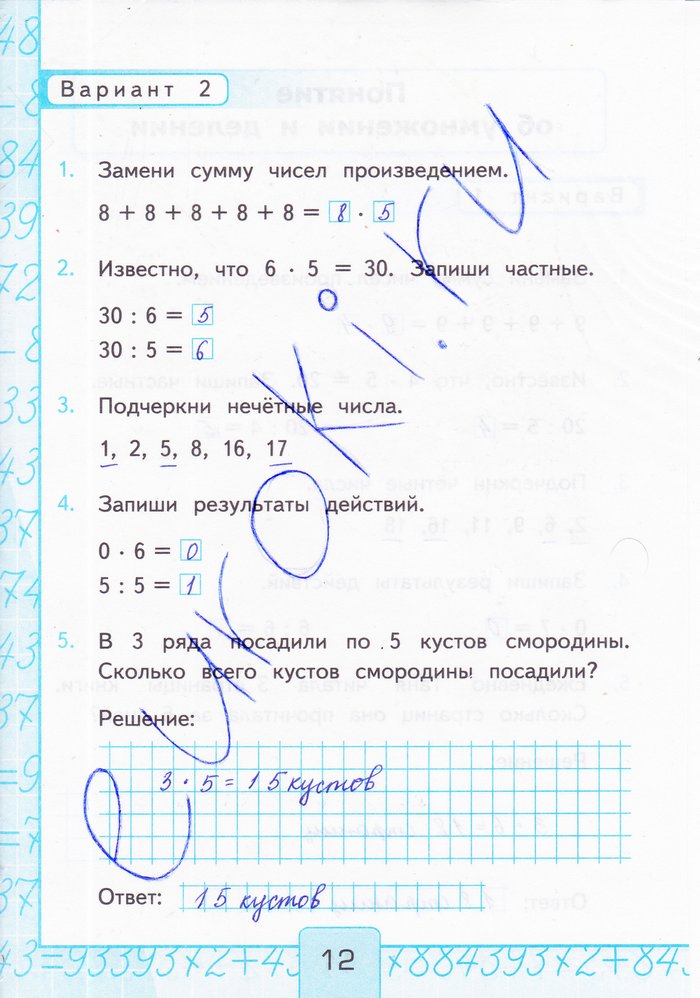 Вариант 2
1. Замени сумму чисел произведением.
8 + 8 + 8 + 8 + 8 = 8 · 5
2. Известно, что 6 · 5 = 30. Запиши частные.
30 : 6 = 5
30 : 5 = 6
3. Подчеркни нечётные числа.
1, 2, 5, 8, 16, 17
4. Запиши результаты действий.
0 · 6 = 0
5 : 5 = 1
5. В 3 ряда посадили по 5 кустов смородины.
Сколько всего кустов смородины посадили?
Решение:
3 · 5 = 15 кустов
Ответ: 15 кустов
12